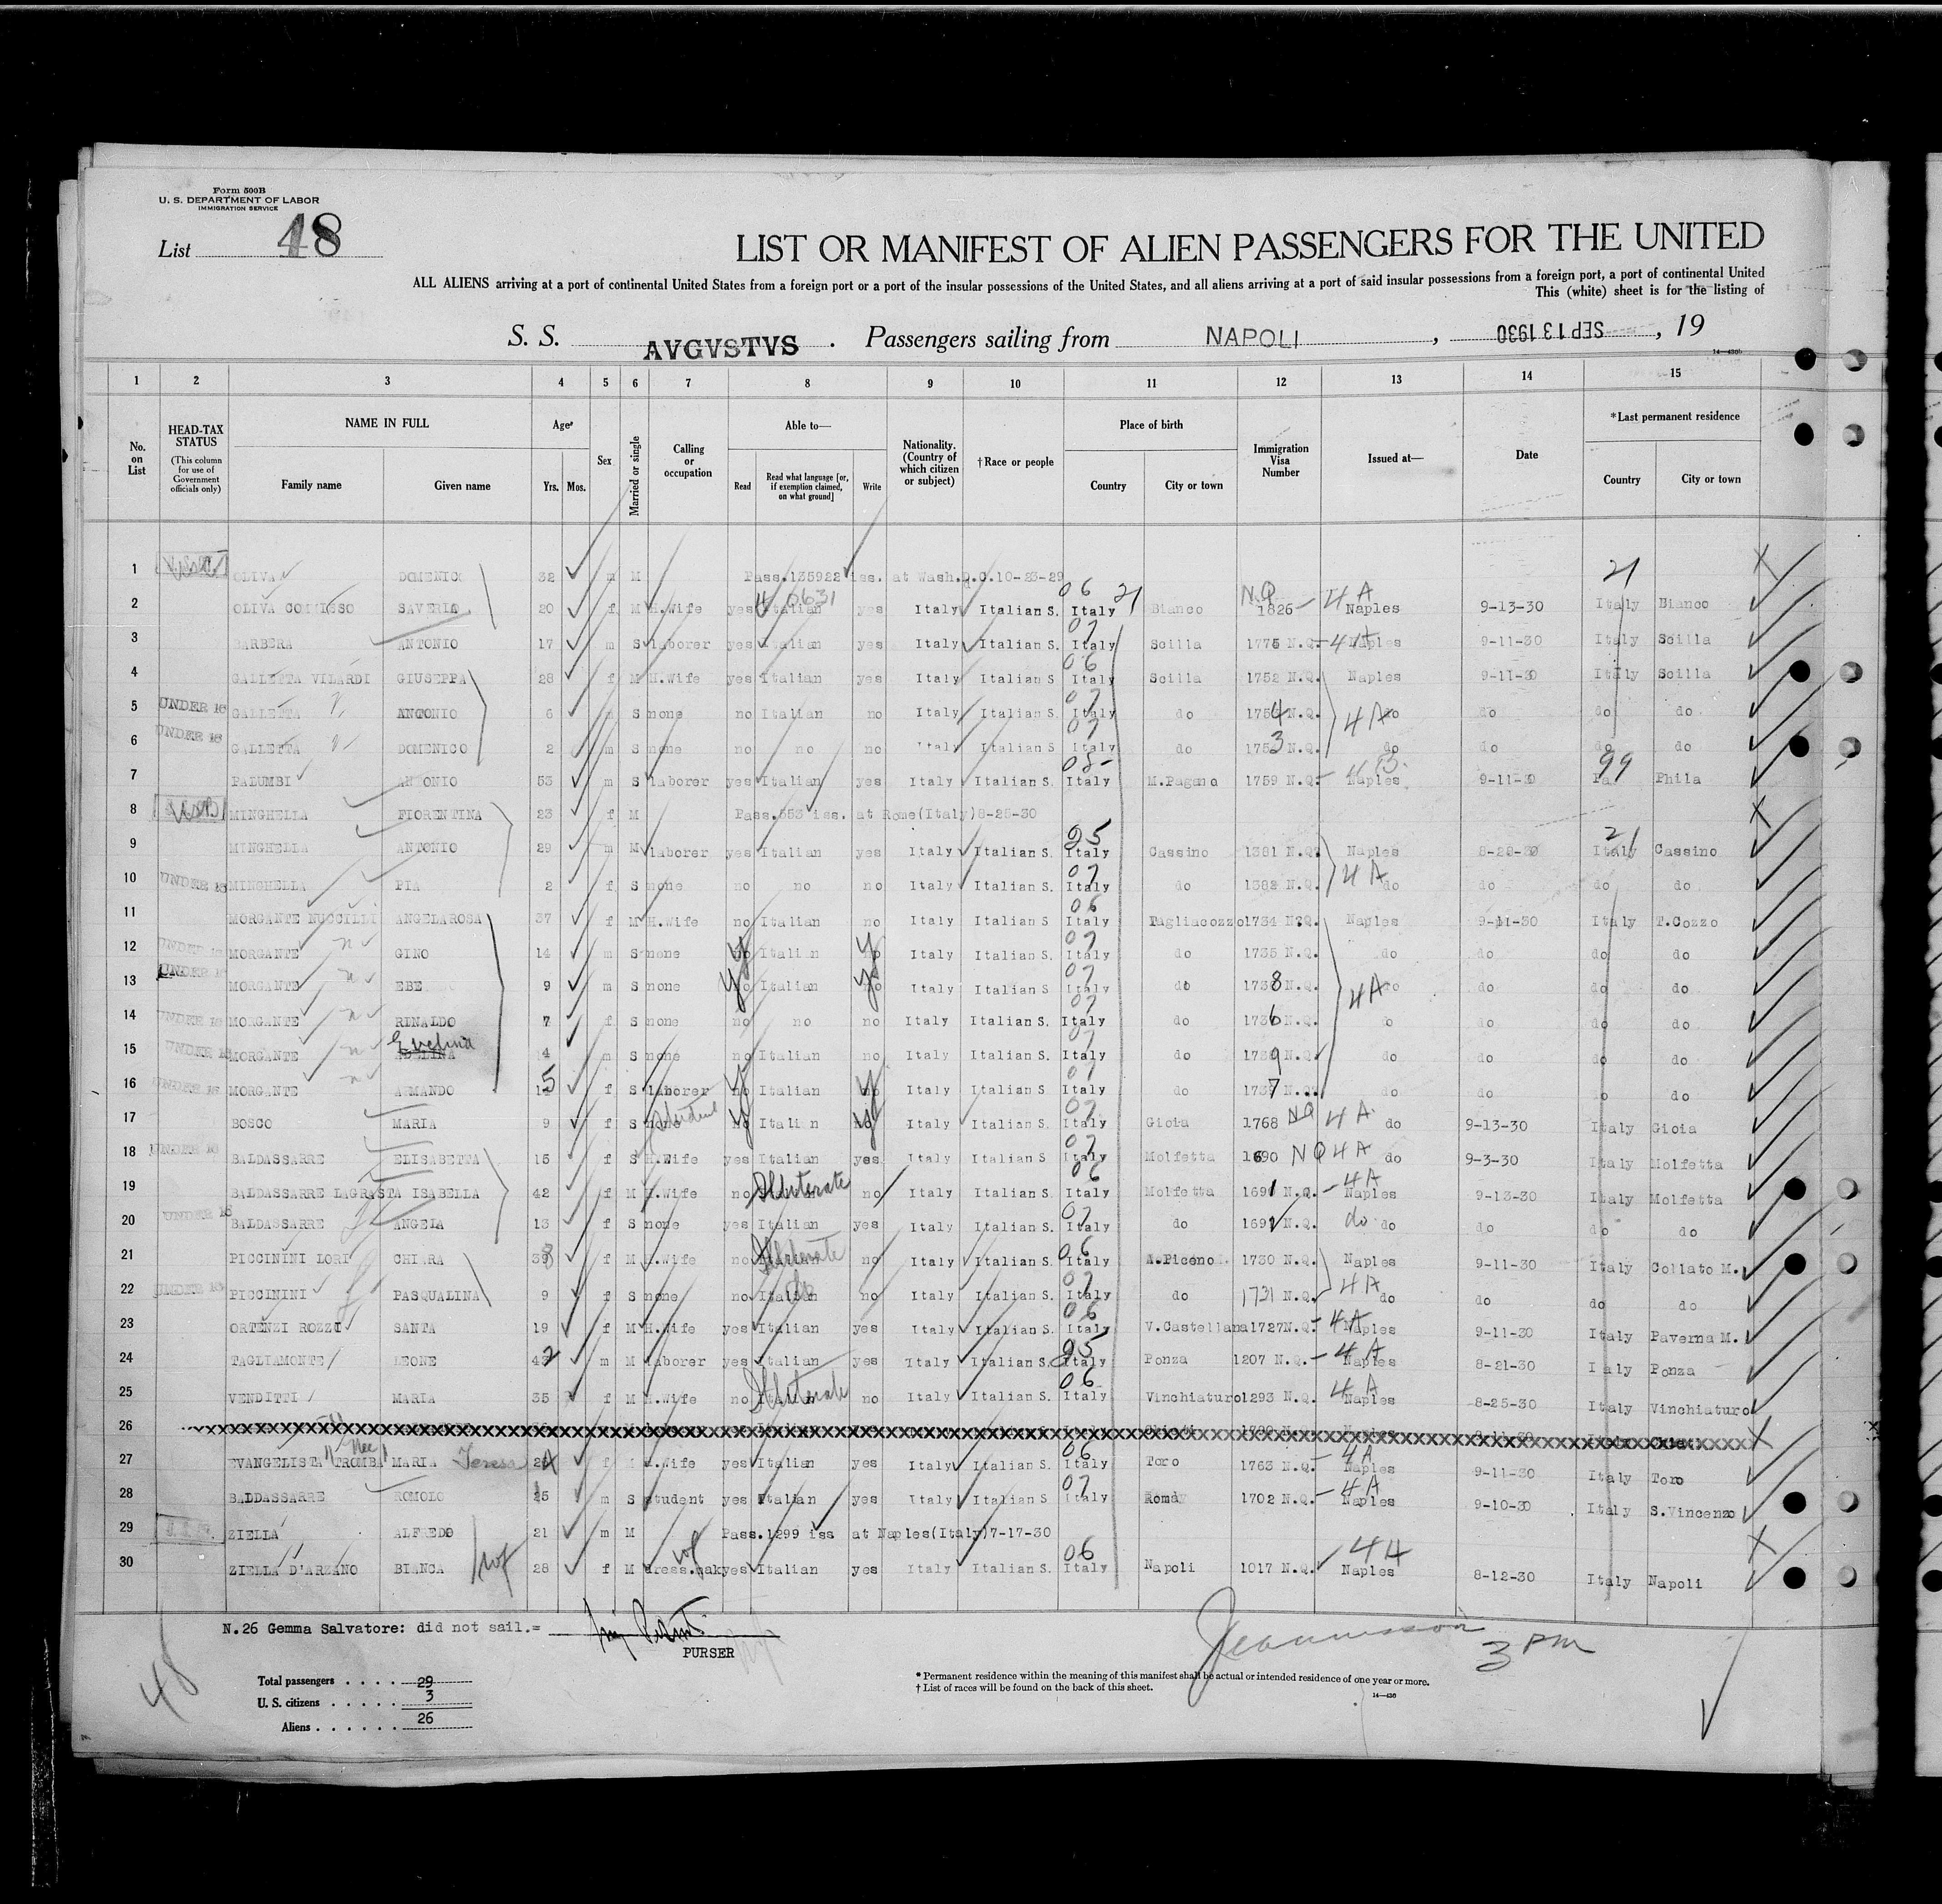 Form 500B
U. S. DEPARTMENT OF LABOR
IMMIGRATION SERVICE
List 48
LIST OR MANIFEST OF ALIEN PASSENGERS FOR THE UNITED
ALL ALIENS arriving at a port of continental United States from a foreign port or a port of the insular possessions of the United States, and all aliens arriving at a port of said insular possessions from a foreign port, a port of continental United
This (white) sheet is for the listing of
S. S. AVGVSTVS . Passengers sailing from NAPOLI , SEP 13 1930 , 19
14—430b
1 2 3 4 5 6 7 8 9 10 11 12 13 14 15
No. on List
HEAD-TAX STATUS (This column for use of Government officials only)
NAME IN FULL Family name Given name
Age Yrs. Mos.
Sex
Married or single
Calling or occupation
Able to— Read Read what language [or, if exemption claimed, on what ground] Write
Nationality. (Country of which citizen or subject)
†Race or people
Place of birth Country City or town
Immigration Visa Number
Issued at—
Date
*Last permanent residence Country City or town
1 OLIVA DOMENICO 32 m M Pass.135922 iss. at Wash.D.C.10-23-29 21
2 OLIVA COMMISSO SAVERIA 20 f M H.Wife yes Italian yes Italy Italian S. Italy 06 21 Bianco NQ 1826 4A Naples 9-13-30 Italy Bianco
3 BARBERA ANTONIO 17 m S laborer yes Italian yes Italy Italian S. Italy 07 Scilla 1775 N.Q. Naples 9-11-30 Italy Scilla
4 GALLETTA VILARDI GIUSEPPA 28 f M H.Wife yes Italian yes Italy Italian S Italy 06 Scilla 1752 N.Q. Naples 9-11-30 Italy Scilla
5 UNDER 16 GALLETTA ANTONIO 6 m S none no Italian no Italy Italian S. Italy 07 do 1754 N.Q. 4A do do do do
6 UNDER 16 GALLETTA DOMENICO 2 m S none no no no Italy Italian S Italy 07 do 1753 N.Q. do do do do
7 PALUMBI ANTONIO 53 m S laborer yes Italian yes Italy Italian S. Italy M.Pagano 1759 N.Q. Naples 9-11-30 Pa 99 Phila
8 MINGHELLA FIORENTINA 23 f M Pass.553 iss. at Rome(Italy)8-25-30
9 MINGHELLA ANTONIO 29 m M laborer yes Italian yes Italy Italian S. Italy Cassino 1381 N.Q. Naples 8-28-30 Italy 21 Cassino
10 UNDER 16 MINGHELLA PIA 2 f S none no no no Italy Italian S. Italy 07 do 1382 N.Q. 4A do do do do
11 MORGANTE NUCCILLI ANGELAROSA 37 f M H.Wife no Italian no Italy Italian S Italy 06 Tagliacozzo 1734 N.Q. Naples 9-11-30 Italy T.Cozzo
12 UNDER 16 MORGANTE GINO 14 m S none no Italian no Italy Italian S. Italy 07 do 1735 N.Q. do do do do
13 UNDER 16 MORGANTE EBE 9 m S none no Italian no Italy Italian S Italy 07 do 1738 N.Q. 4A do do do do
14 UNDER 16 MORGANTE RINALDO 7 f S none no no no Italy Italian S. Italy 07 do 1736 N.Q. do do do do
15 UNDER 16 MORGANTE Evelina 4 m S none no Italian no Italy Italian S. Italy 07 do 1739 N.Q. do do do do
16 UNDER 16 MORGANTE ARMANDO 15 f S laborer no Italian no Italy Italian S. Italy 07 do 1737 N. do do do do
17 BOSCO MARIA 9 f S none student no Italian no Italy Italian S. Italy 07 Gioia 1768 NQ 4A do 9-13-30 Italy Gioia
18 UNDER 16 BALDASSARRE ELISABETTA 15 f S H.Wife yes Italian yes Italy Italian S Italy 07 Molfetta 1690 NQ 4A do 9-3-30 Italy Molfetta
19 BALDASSARRE LAGRASTA ISABELLA 42 f M H.Wife no Illiterate no Italy Italian S. Italy 06 Molfetta 1691 N.Q. 4A Naples 9-13-30 Italy Molfetta
20 UNDER 16 BALDASSARRE ANGELA 13 f S none yes Italian yes Italy Italian S. Italy 07 do 1692 N.Q. do do do do do
21 PICCININI LORI CHIARA 38 f M H.Wife no Illiterate no Italy Italian S. Italy 06 A.Piceno 1730 N.Q. Naples 9-11-30 Italy Collato M.
22 UNDER 16 PICCININI PASQUALINA 9 f S none no Italian no Italy Italian S. Italy 07 do 1731 N.Q. 4A do do do do
23 ORTENZI ROZZI SANTA 19 f M H.Wife yes Italian yes Italy Italian S. Italy 06 V.Castellana 1727 N.Q. 4A Naples 9-11-30 Italy Paverna M.
24 TAGLIAMONTE LEONE 42 m M laborer yes Italian yes Italy Italian S. Italy Ponza 1207 N.Q. 4A Naples 8-21-30 Italy Ponza
25 VENDITTI MARIA 35 f M H.Wife no Illiterate no Italy Italian S. Italy 06 Vinchiaturo 1293 N.Q. 4A Naples 8-25-30 Italy Vinchiaturo
26
27 EVANGELISTA Nee TROMBA MARIA Teresa 24 f H.Wife yes Italian yes Italy Italian S. Italy 06 Toro 1763 N.Q. 4A Naples 9-11-30 Italy Toro
28 BALDASSARRE ROMOLO 25 m S student yes Italian yes Italy Italian S Italy 07 Roma 1702 N.Q. 4A Naples 9-10-30 Italy S.Vincenzo
29 ZIELLA ALFREDO 21 m M Pass.1299 iss at Naples(Italy)7-17-30
30 ZIELLA D'ARZANO BIANCA 28 f M dress.mak yes Italian yes Italy Italian S. Italy 06 Napoli 1017 N.Q. Naples 8-12-30 Italy Napoli
N.26 Gemma Salvatore: did not sail.=
PURSER
3 PM
48
Total passengers . . . . 29
U. S. citizens . . . . . 3
Aliens . . . . . . 26
* Permanent residence within the meaning of this manifest shall be actual or intended residence of one year or more.
† List of races will be found on the back of this sheet.
14—430